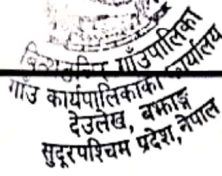 गाउँपालिका
गाउँ कार्यपालिकाको कार्यालय
देउलेख, बझाङ्ग
सुदूरपश्चिम प्रदेश, नेपाल